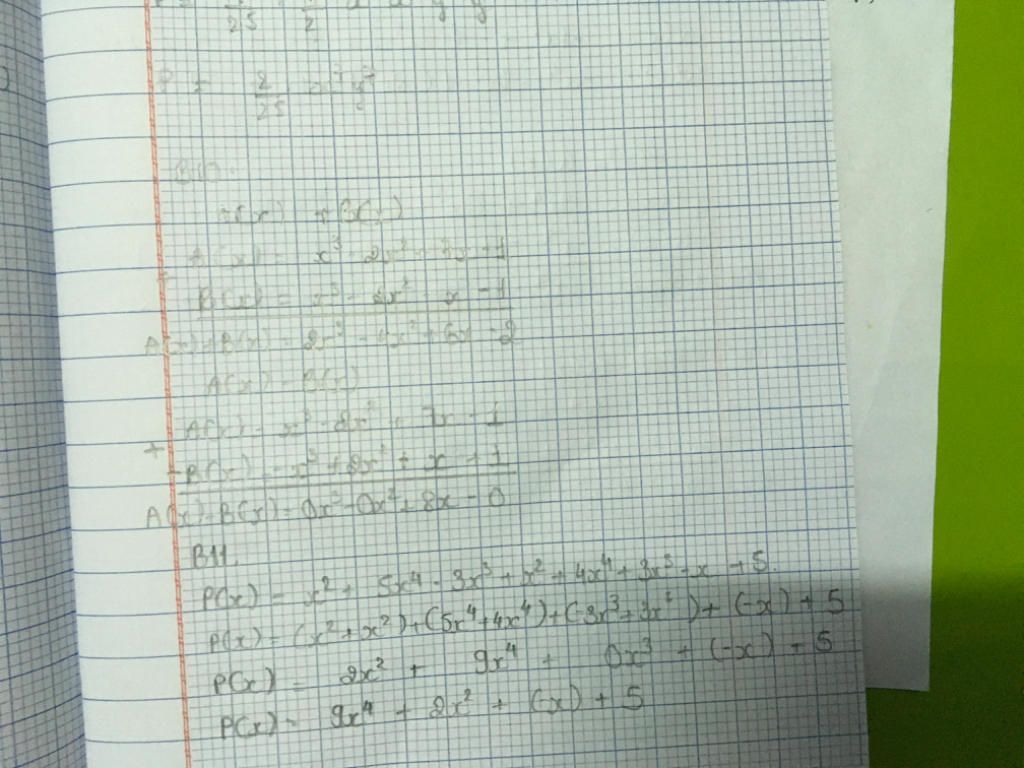 P = 2/25 x⁷y⁷
B10.
A(x) + B(x)
A(x) = x³ - 2x² + 7x - 1
+
B(x) = x³ - 2x² - x - 1
A(x) + B(x) = 2x³ - 4x² + 6x - 2
A(x) - B(x)
A(x) = x³ - 2x² + 7x - 1
+
-B(x) = -x³ + 2x² + x + 1
A(x) - B(x) = 0x³ - 0x² + 8x - 0
B11.
P(x) = x² + 5x⁴ - 3x³ + x² + 4x⁴ + 3x³ - x + 5.
P(x) = (x² + x²) + (5x⁴ + 4x⁴) + (-3x³ + 3x³) + (-x) + 5
P(x) = 2x² + 9x⁴ + 0x³ + (-x) + 5
P(x) = 9x⁴ + 2x² + (-x) + 5